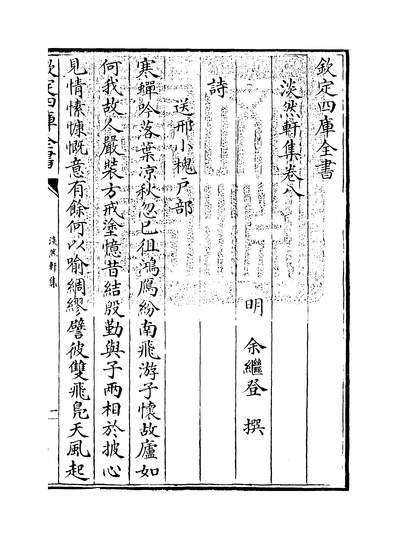 欽定四庫全書
淡然軒集卷八
明 余繼登 撰
詩
送邢小槐戸部
寒蟬吟落葉涼秋忽已徂鴻鴈紛南飛游子懷故廬如
何我故人嚴裝方戒塗憶昔結殷勤與子兩相於披心
見情愫慷慨意有餘何以喻綢繆譬彼雙飛鳬天風起
欽定四庫全書
淡然軒集